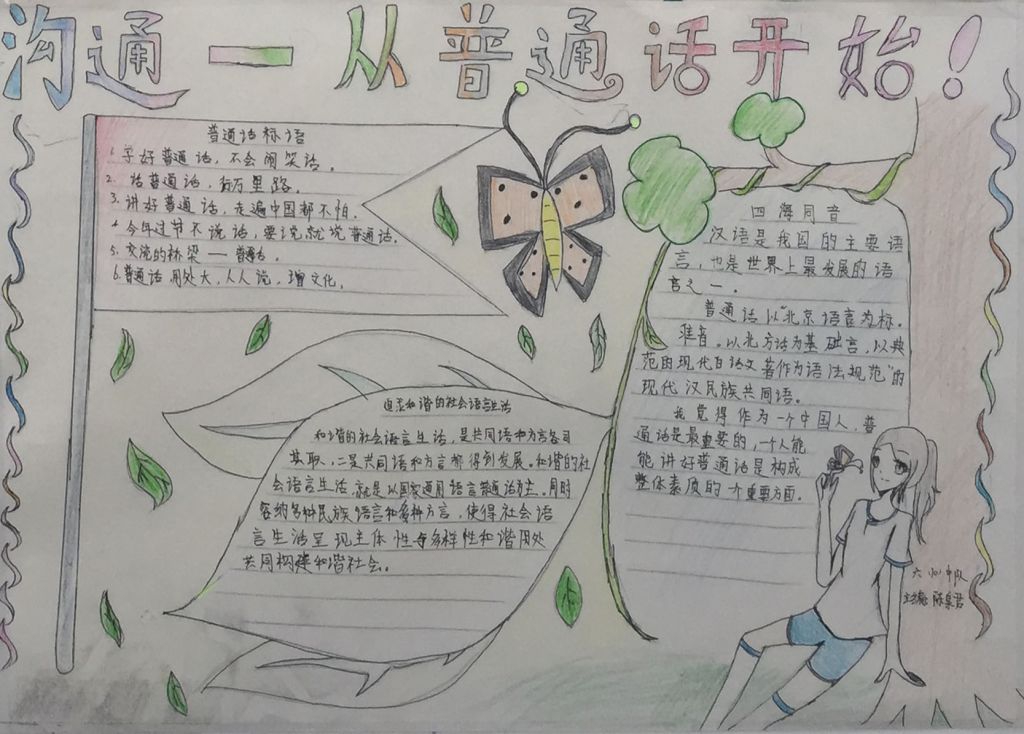 沟通一从普通话开始！
普通话标语
1. 学好普通话，不会闹笑话。
2. 话普通话，行万里路。
3. 讲好普通话，走遍中国都不怕。
4. 今年过节不说话，要说就说普通话。
5. 交流的桥梁——普通话。
6. 普通话用处大，人人说，增文化。
四海同音
汉语是我国的主要语
言，也是世界上最发展的语
言之一。
普通话以"北京语音为标
准音。以北方话为基础言，以典
范的现代白话文著作为语法规范"的
现代汉民族共同语。
我觉得作为一个中国人，普
通话是最重要的，一个人能
能讲好普通话是构成
整体素质的一个重要方面。
和谐的社会语言生活
和谐的社会语言生活，是共同语和方言各司
其职，二是共同语和方言都得到发展。和谐的社
会语言生活，就是以国家通用语言普通话为主。同时
容纳多种民族语言和多种方言，使得社会语
言生活呈现主体性与多样性和谐用处
共同构建和谐社会。
中队
陈